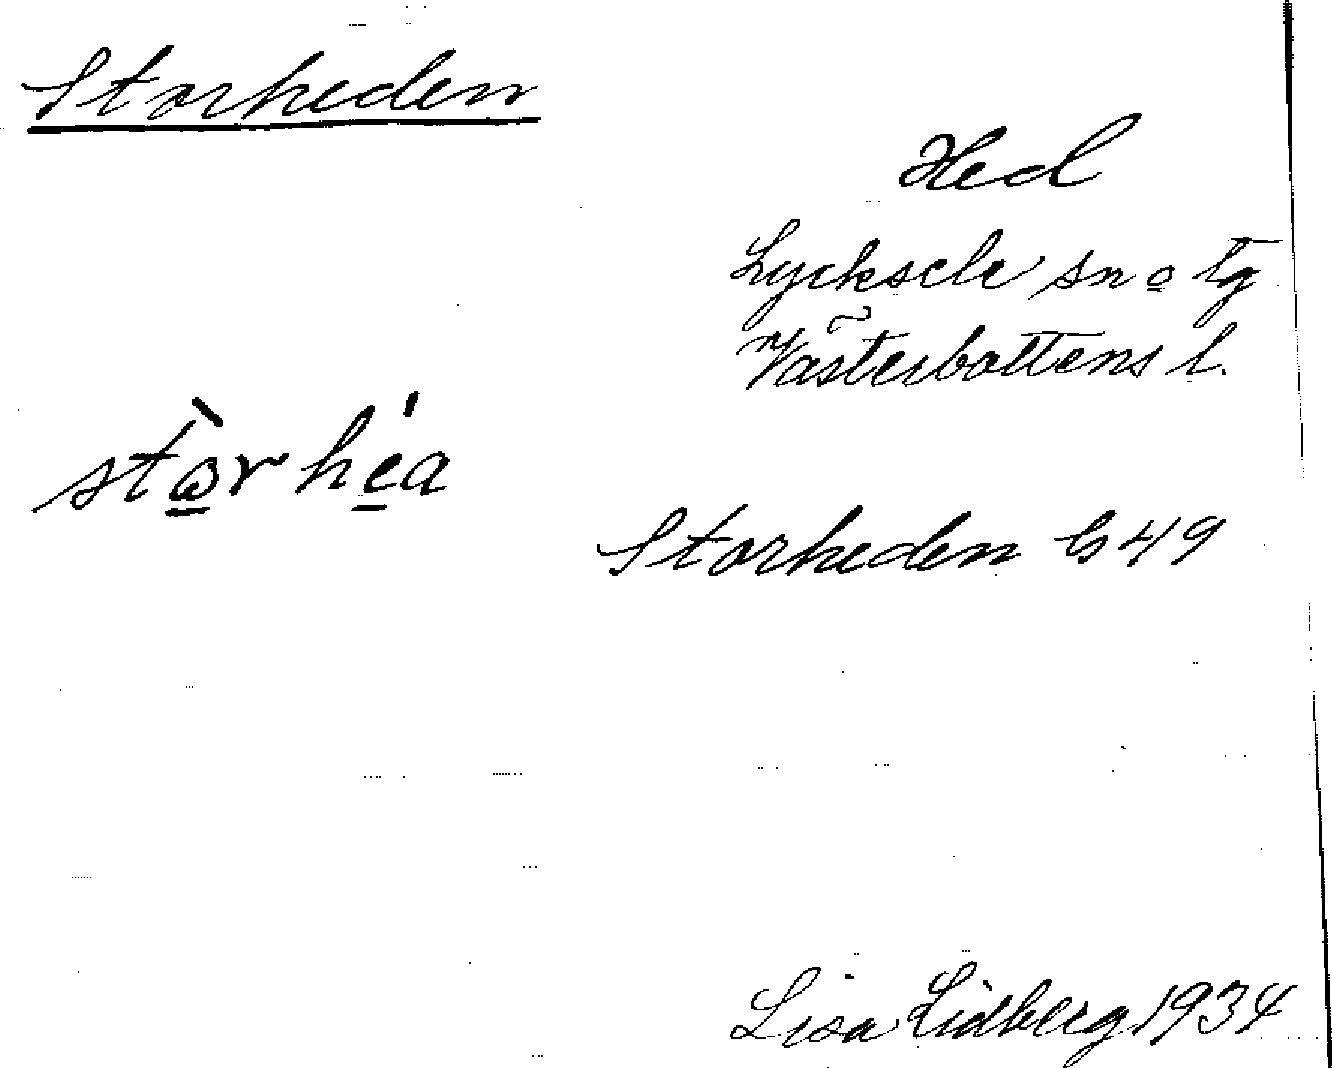 Storheden
Hed
Lycksele sn o tg
Västerbottens l.
stòrhéa
Storheden G49
Lisa Lidberg 1934